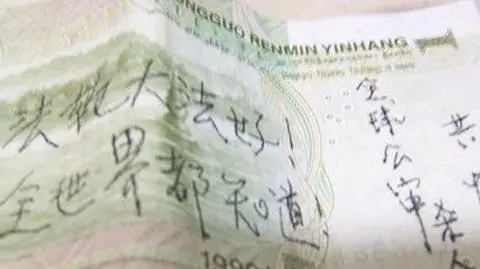 NGGUO RENMIN YINHANG
法轮大法好！
全世界都知道！
全球公审
共
杀人
199